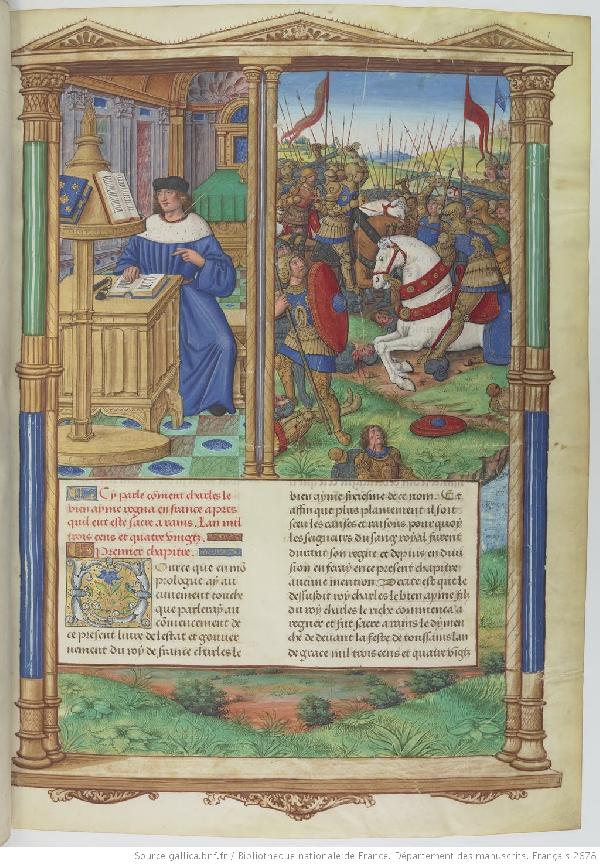 Cy parle cõment charles le
bien ayme regna en france apres
quil eut este sacre a rains. Lan mil
trois cens et quatre vingtz.
Premier chapitre.
Pource que en mõ
prologue ay au
cunement touche
que parleray au
cõmencement de
ce present livre de lestat et gouver
nement du roy de france charles le
bien ayme sixiesme de ce nom. Et
affin que plus plainement il soit
sceu les causes et raisons pourquoy
les seigneurs du sang royal furent
durant son regne et depuis en divi
sion en feray en ce present chapitre
aucune mention. Verite est que le
dessusdit roy charles le bien ayme filz
du roy charles le riche commenca a
regner et fut sacre a rains le dymen
che de devant la feste de toussains lan
de grace mil trois cens et quatre vigtz
Source gallica.bnf.fr / Bibliothèque nationale de France. Département des manuscrits. Français 2678